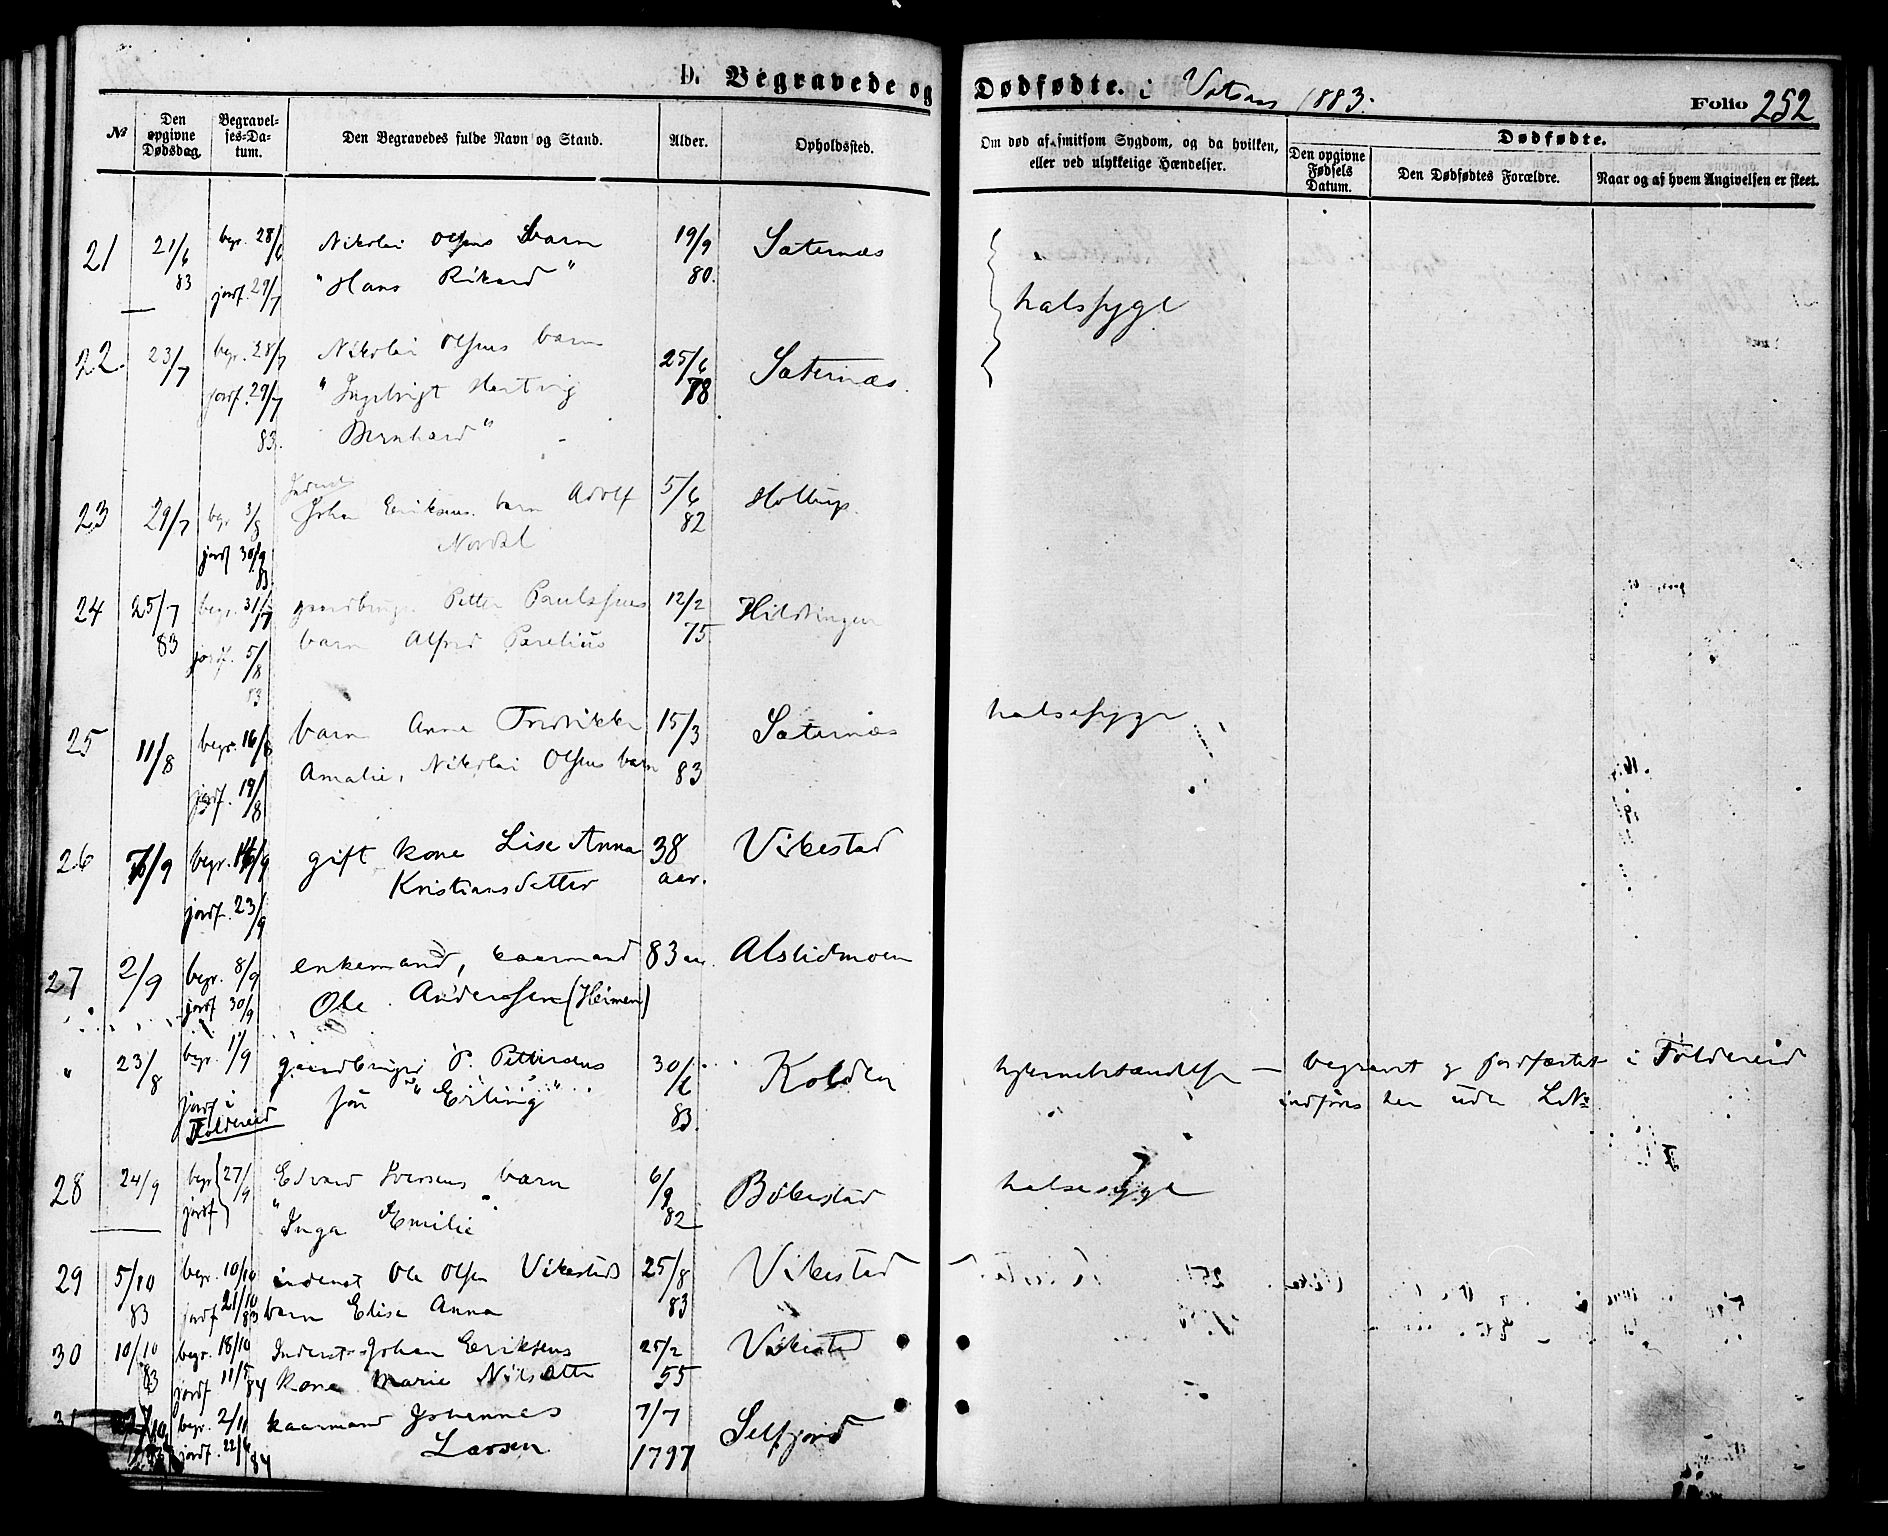 D. Begravede og Dødfødte. i Vatnas 1883. Folio 252
№ Den opgivne Dødsdag. Begravelses-Datum. Den Begravedes fulde Navn og Stand. Alder. Opholdssted. Om død af smitsom Sygdom, og da hvilken, eller ved ulykkelige Hændelser. Dødfødte. Den opgivne Fødsels Datum. Den Dødfødtes Forældre. Naar og af hvem Angivelsen er skeet.
21 21/6 begr. 28/6 Nikolai Olsens barn 19/9 Sæternæs
83 jordf. 29/7 "Hans Rikard" 80.
halssyge
22. 23/7 begr. 28/7 Nikolai Olsens barn 25/6 Sæternæs.
jordf. 29/7 "Ingebrigt Hartvig 78
83. Bernhard"
Inderst
23 29/7 begr 3/8 Johan Eriksens barn Adolf 5/6 Holtup.
jordf 30/9 Nordal 82
83
24 25/7 begr. 31/7 gaardbruger Petter Paulssens 12/2 Hildringen
83 jordf. 5/8 barn Alfred Parelius 75
83
25 11/8 begr. 16/8 barn Anne Fredrikke 15/3 Sæternæs halssyge
jordf. 19/8 Amalie, Nikolai Olsens barn 83
26 /9 begr. /9 gift kone Lise Anna 38 Vikestad
jordf. 23/9 Kristiansdatter aar.
27 2/9 begr. 8/9 enkemand, kaarmand 83 aar Alstidmoen
jordf 30/9 Ole Anderssen (Heimen)
" 23/8 begr. 1/9 gaardbruger P. Pettersens 30/6 Kolden hjernebetændelse — begravet og jordfæstet i Foldereid
jordf i Foldereid søn "Erling" 83. indføres her uden L№
28 24/9 begr jordf } 27/9 Edvard Iversens barn 6/9 Bökestad halsesyge
"Inga Emilie" 82
29 5/10 begr. 10/10 inderst Ole Olsen Vikestads 25/8 Vikestad
83 jordf 21/10 83 barn Elise Anna 83
30 10/10 begr. 18/10 Inderst Johan Eriksens 25/2 Vikestad
83 jordf 11/5 84 kone Marie Nilsdatter 55
31 27/10 begr. 2/11 kaarmand Johannes 7/7 Selfjord
83 jordf. 22/6 84 Larsen 1797